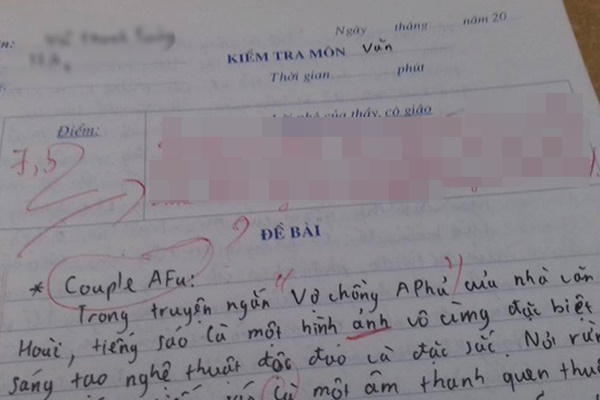 Ngày tháng năm 20
KIỂM TRA MÔN Văn
Thời gian phút
Điểm:
Lời phê của thầy, cô giáo
7,5
ĐỀ BÀI
* Couple AFu:
Trong truyện ngắn "Vợ chồng APhủ" của nhà văn
Hoài, tiếng sáo là một hình ảnh vô cùng đặc biệt
sáng tạo nghệ thuật độc đáo và đặc sắc. Nói
là một âm thanh quen